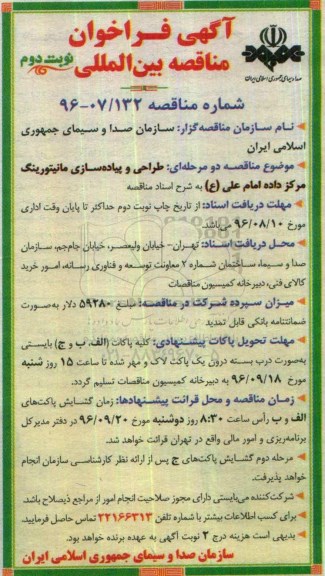 آگهی فراخوان
مناقصه بین‌المللی
نوبت دوم
صدا و سیمای جمهوری اسلامی ایران
شماره مناقصه ۹۶-۰۷/۱۳۲
نام سازمان مناقصه‌گزار: سازمان صدا و سیمای جمهوری
اسلامی ایران
موضوع مناقصه دو مرحله‌ای: طراحی و پیاده‌سازی مانیتورینگ
مرکز داده امام علی (ع) به شرح اسناد مناقصه
مهلت دریافت اسناد: از تاریخ چاپ نوبت دوم حداکثر تا پایان وقت اداری
مورخ ۹۶/۰۸/۱۰ می‌باشد.
محل دریافت اسناد: تهران- خیابان ولیعصر، خیابان جام‌جم، سازمان
صدا و سیما، ساختمان شماره ۲ معاونت توسعه و فناوری رسانه، امور خرید
کالای فنی، دبیرخانه کمیسیون مناقصات
میزان سپرده شرکت در مناقصه: مبلغ ۵۹۲۸۰ دلار به‌صورت
ضمانتنامه بانکی قابل تمدید
مهلت تحویل پاکات پیشنهادی: کلیه پاکات (الف، ب و ج) بایستی
به‌صورت درب بسته درون یک پاکت لاک و مهر شده تا ساعت ۱۵ روز شنبه
مورخ ۹۶/۰۹/۱۸ به دبیرخانه کمیسیون مناقصات تسلیم گردد.
زمان مناقصه و محل قرائت پیشنهادها: زمان گشایش پاکت‌های
الف و ب رأس ساعت ۸:۳۰ روز دوشنبه مورخ ۹۶/۰۹/۲۰ در دفتر مدیرکل
برنامه‌ریزی و امور مالی واقع در تهران قرائت خواهد شد.
مرحله دوم گشایش پاکت‌های ج پس از ارائه نظر کارشناسی سازمان انجام
خواهد پذیرفت.
شرکت‌کننده می‌بایستی دارای مجوز صلاحیت انجام امور از مراجع ذیصلاح باشد.
برای کسب اطلاعات بیشتر با شماره تلفن ۲۲۱۶۶۳۱۳ تماس حاصل فرمایید.
بدیهی است هزینه درج ۲ نوبت آگهی به عهده برنده خواهد بود.
سازمان صدا و سیمای جمهوری اسلامی ایران